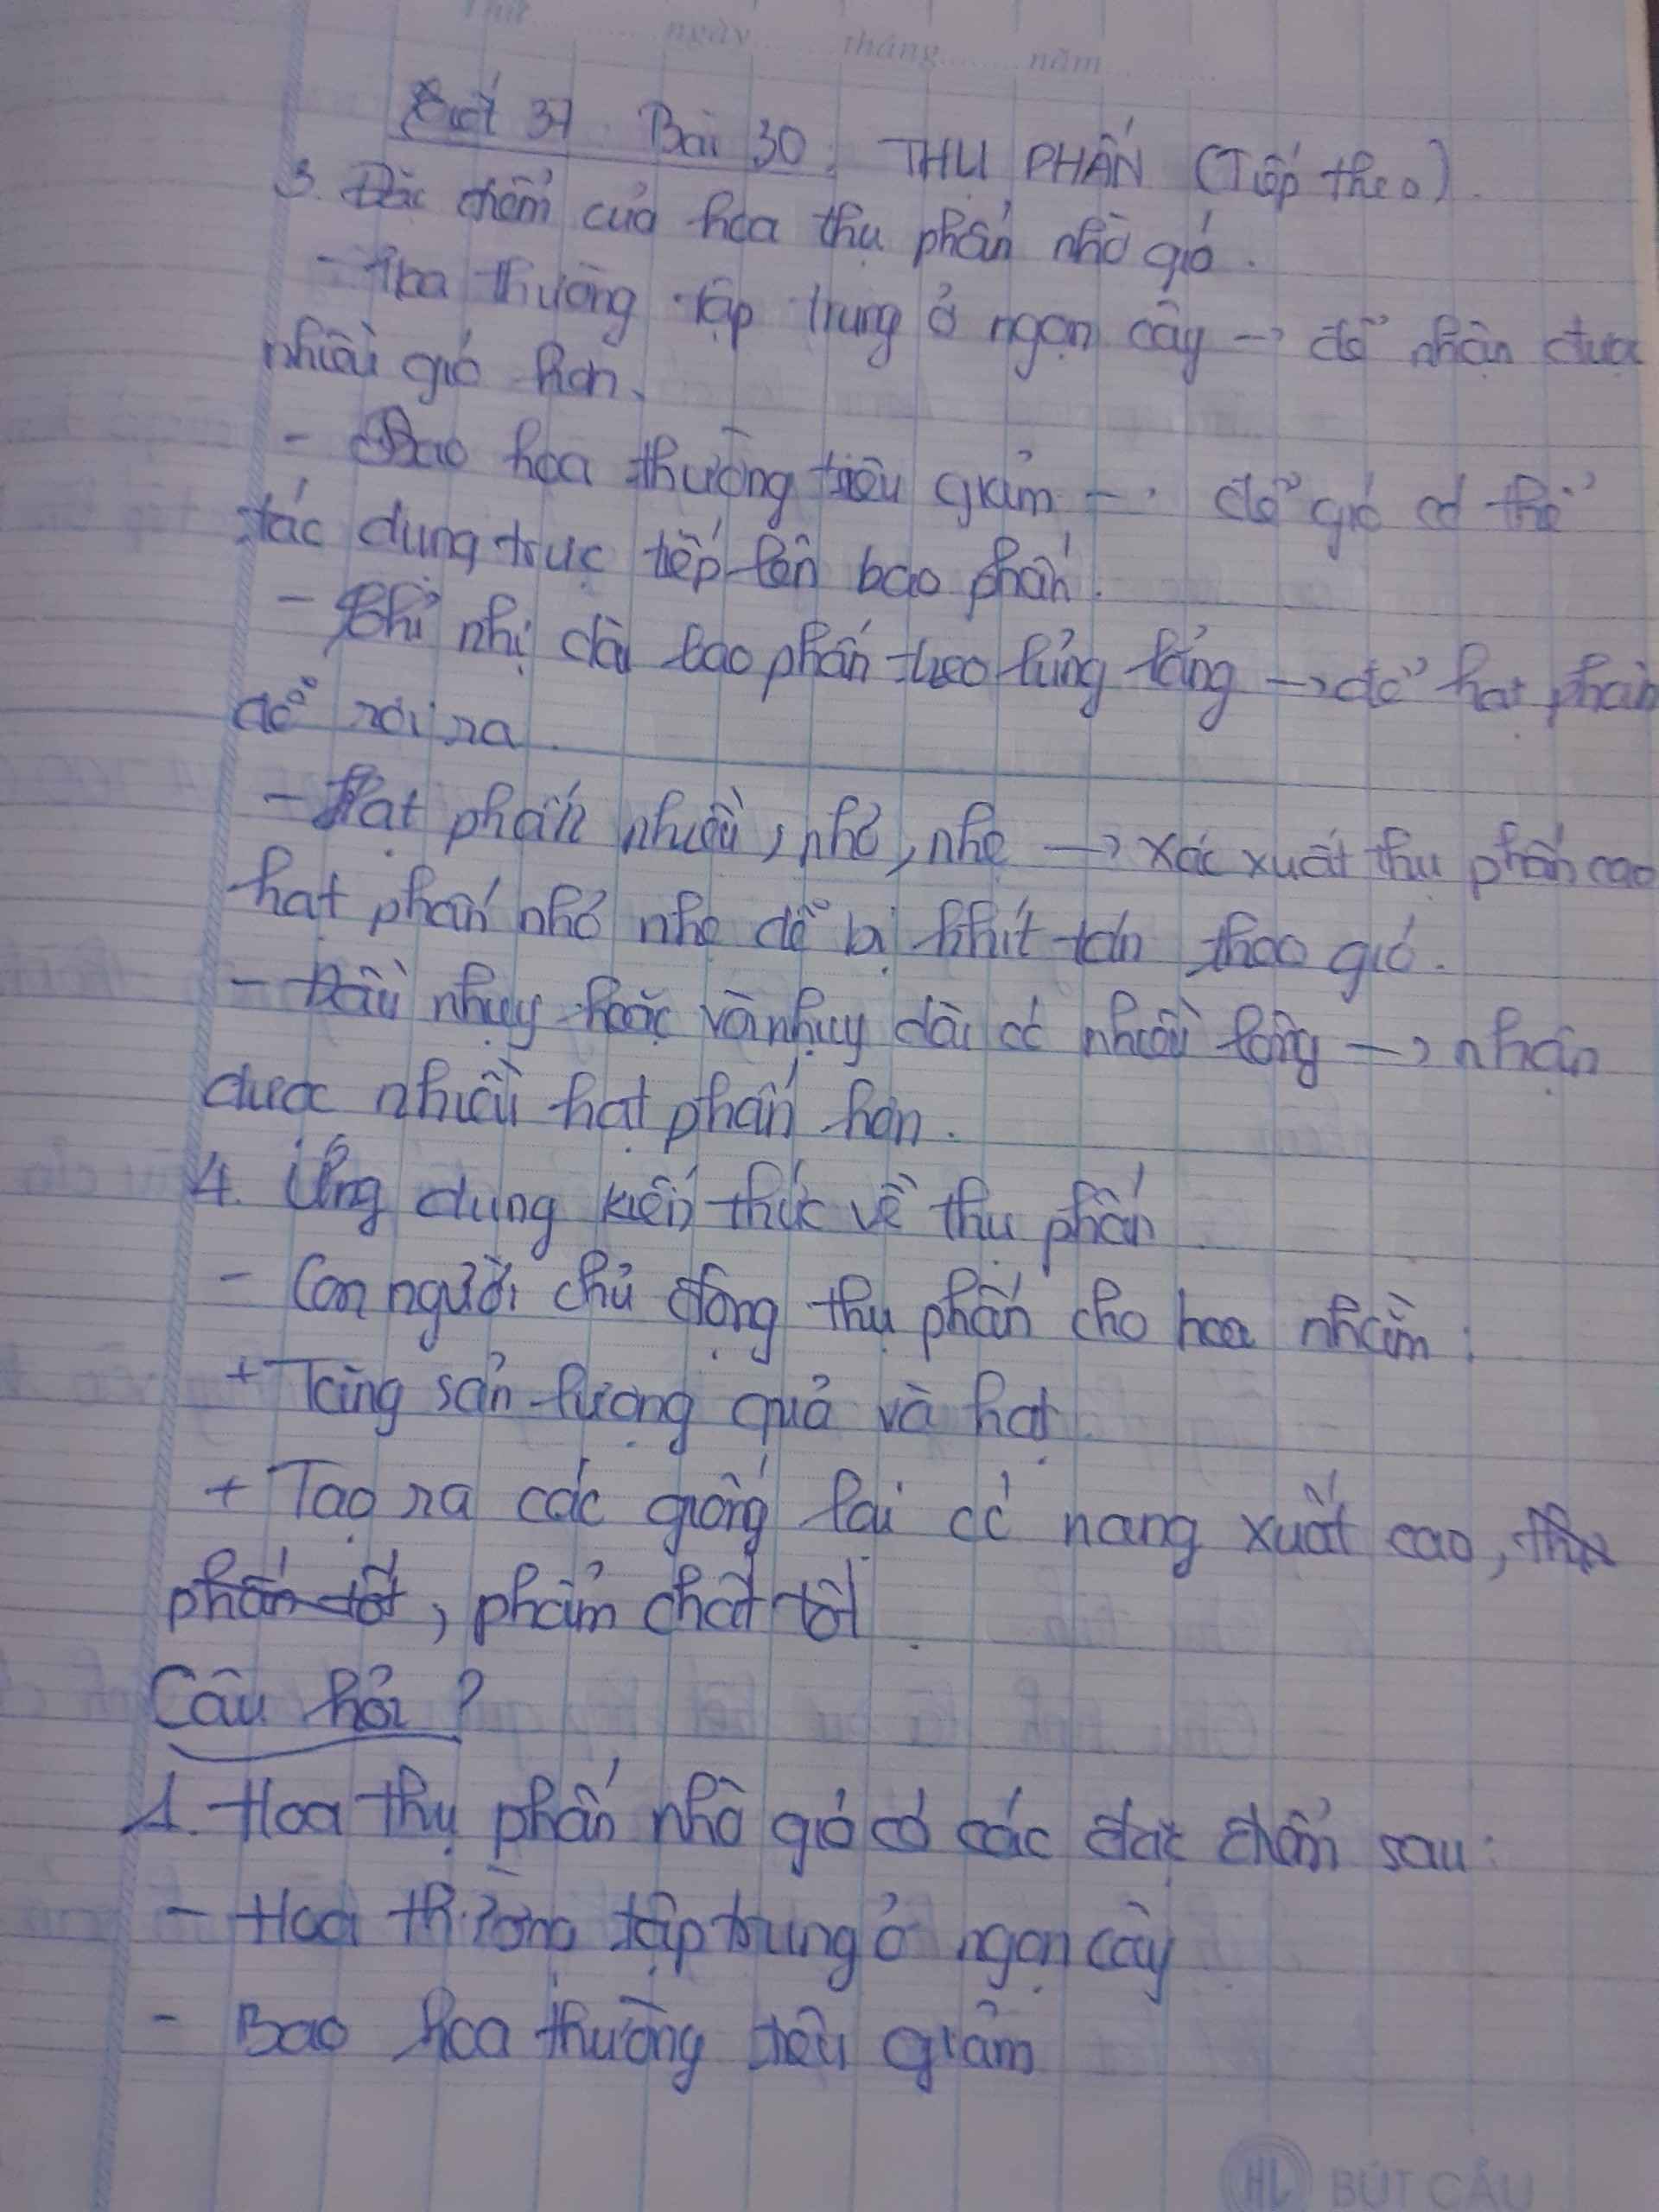 Thứ ngày tháng năm
Tiết 37 Bài 30: THỤ PHẤN (Tiếp theo)
3. Đặc điểm của hoa thụ phấn nhờ gió.
- Hoa thường tập trung ở ngọn cây → để nhận được
nhiều gió hơn.
- Bao hoa thường tiêu giảm → để gió có thể
tác dụng trực tiếp lên bao phấn.
- Chỉ nhị dài bao phấn treo lủng lẳng → để hạt phấn
dễ rơi ra.
- Hạt phấn nhiều, nhỏ, nhẹ → xác xuất thụ phấn cao
hạt phấn nhỏ nhẹ dễ bị khít tán theo gió.
- Đầu nhụy hoặc vànhụy dài có nhiều lông → nhận
được nhiều hạt phấn hơn.
4. Ứng dụng kiến thức về thụ phấn
- Con người chủ động thụ phấn cho hoa nhằm:
+ Tăng sản lượng quả và hạt
+ Tạo ra các giống lai có nang xuất cao, thụ
phấn tốt, phẩm chất tốt.
Câu hỏi?
1. Hoa thụ phấn nhờ gió có các đặc điểm sau:
- Hoa thường tập trung ở ngọn cây
- Bao hoa thường tiêu giảm
HL BÚT CẦU